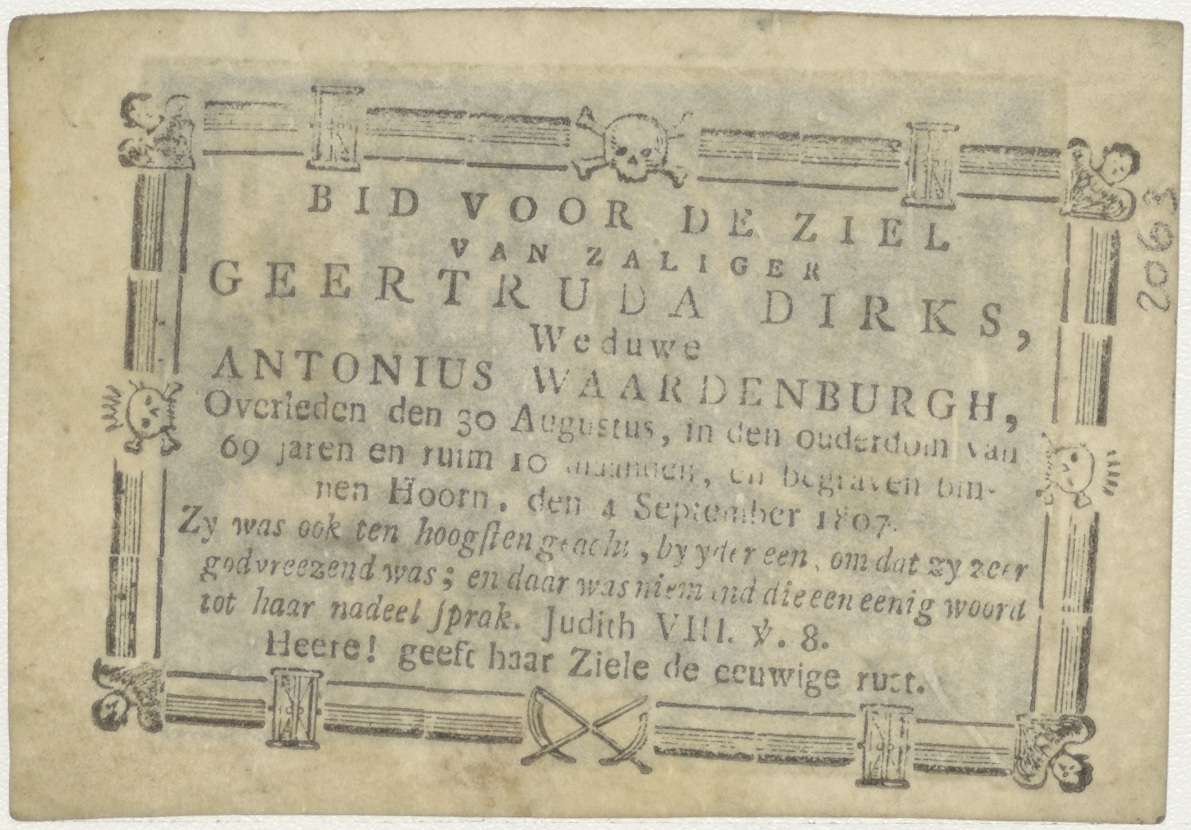 BID VOOR DE ZIEL
VAN ZALIGER
GEERTRUDA DIRKS,
Weduwe
ANTONIUS WAARDENBURGH,
Overleden den 30 Augustus, in den ouderdom van
69 jaren en ruim 10 maanden, en begraven bin-
nen Hoorn, den 4 September 1807.
Zy was ook ten hoogſten geacht, by yder een, om dat zy zeer
godvreezend was; en daar was niemand die een eenig woord
tot haar nadeel ſprak. Judith VIII. ℣. 8.
Heere! geeft haar Ziele de eeuwige rust.
2063